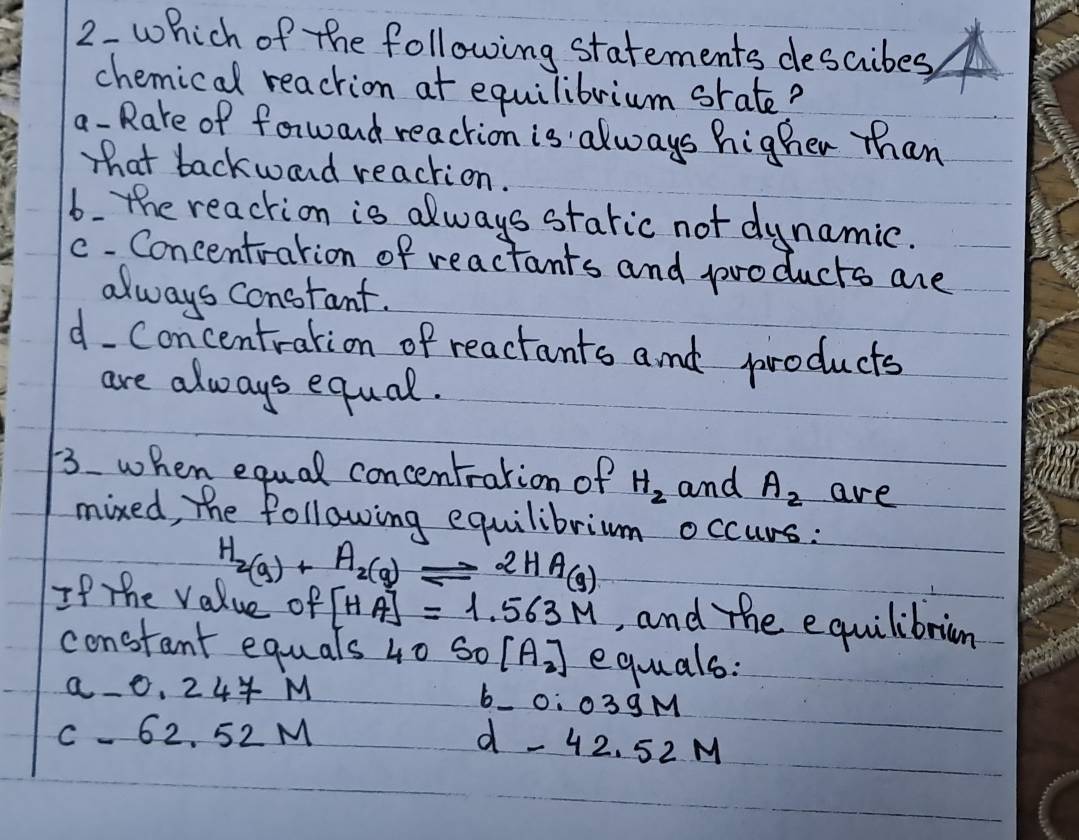 2- Which of the following statements describes
chemical reaction at equilibrium state?
a- Rate of forward reaction is always higher than
that backward reaction.
b- The reaction is always static not dynamic.
c- Concentration of reactants and products are
always constant.
d- Concentration of reactants and products
are always equal.
3- when equal concentration of H₂ and A₂ are
mixed, the following equilibrium occurs:
H₂(g) + A₂(g) ⇌ 2HA(g)
If the value of [HA] = 1.563 M, and the equilibrium
constant equals 40 So [A₂] equals:
a- 0.247 M b- 0.039 M
c- 62.52 M d- 42.52 M